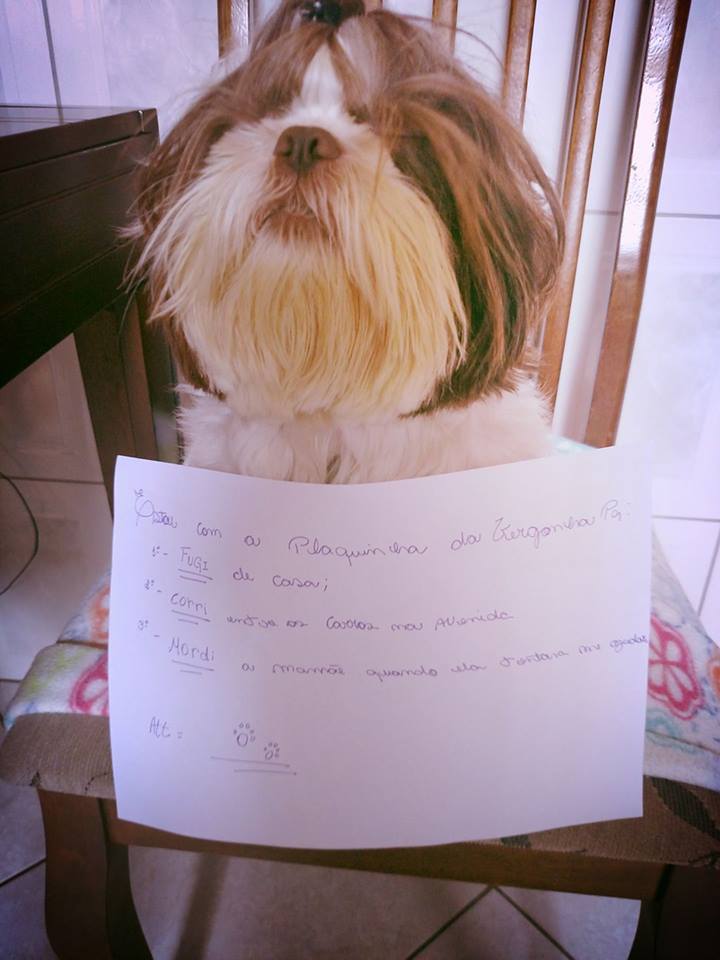 Estou com a Plaquinha da Vergonha Pq:
1º- FUGI de casa;
2º- corri entre os carros na Avenida
3º- Mordi a mamãe quando ela tentava me
Att =